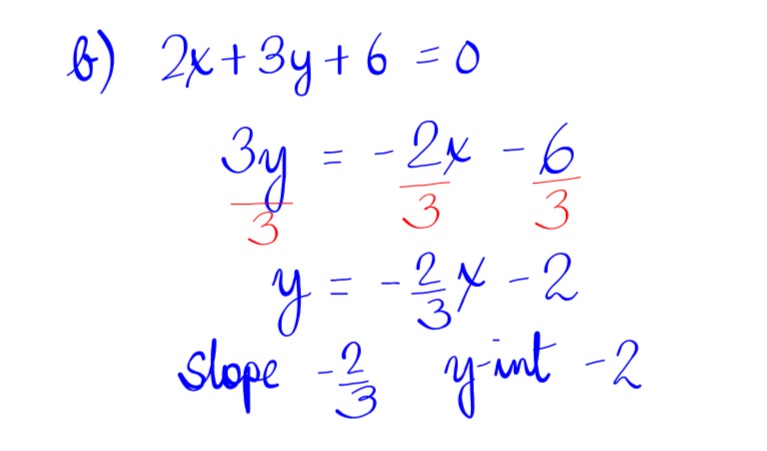 b) 2x + 3y + 6 = 0
3y/3 = -2x/3 - 6/3
y = -2/3 x - 2
slope -2/3 y-int -2